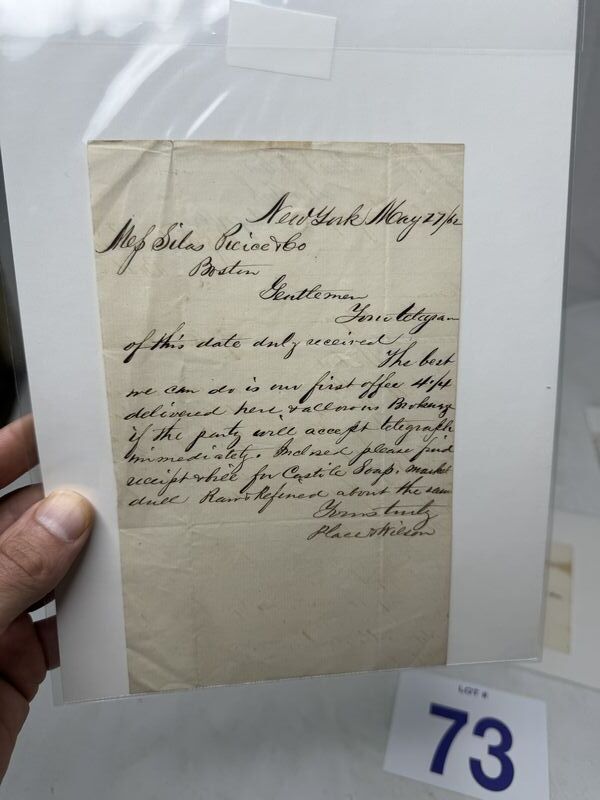 New York May 27/62
Mess Silas Peirce & Co
Boston
Gentlemen
Your telegram
of this date duly received
The best
we can do is our first offer 4¼
delivered here & allow us Brokerage
if the party will accept telegraph
immediately. Inclosed please find
receipt & bill for Castile Soap. market
dull Raw & Refined about the same
Yours truly
Place & Wilson
LOT #
73